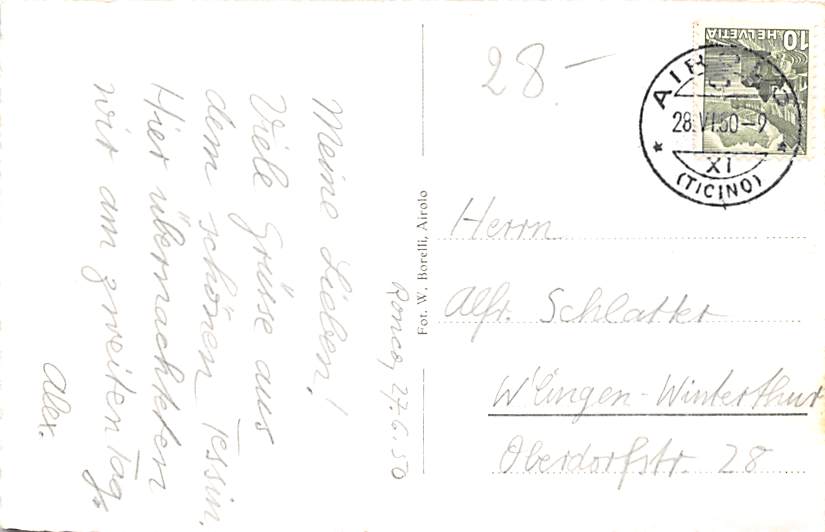 Ronco, 27.6.50
Meine Lieben!
Viele Grüse aus
dem schönen Tessin.
Hier übernachteten
wir am zweiten Tag.
Alex.
Fot. W. Borelli, Airolo
28.–
HELVETIA
10
28.VI.50-9
XI
(TICINO)
Herrn
Alfr. Schlatter
W'lingen-Winterthur
Oberdorfstr. 28